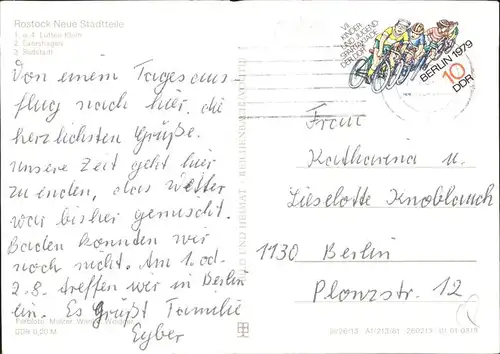 Rostock-Neue Stadtteile
1. u. 4. Lütten Klein
2. Evershagen
3. Reifstadt
Von einem Tagesaus
flug nach hier die
herzlichsten Grüße.
Unsere Zeit geht hier
zu enden, das Wetter
war bisher gemischt.
Baden konnten wir
noch nicht. Am 1. od.
2.8. treffen wir in Berlin
ein. Es grüßt Familie
Eyber
BILD UND HEIMAT REICHENBACH
VII.
KINDER
UND JUGEND
SPARTAKIADE
DER DDR
BERLIN 1979
10
DDR
Frau
Katharina u.
Lieselotte Knoblauch
1130 Berlin
Plonzstr. 12
DDR 0,20 M